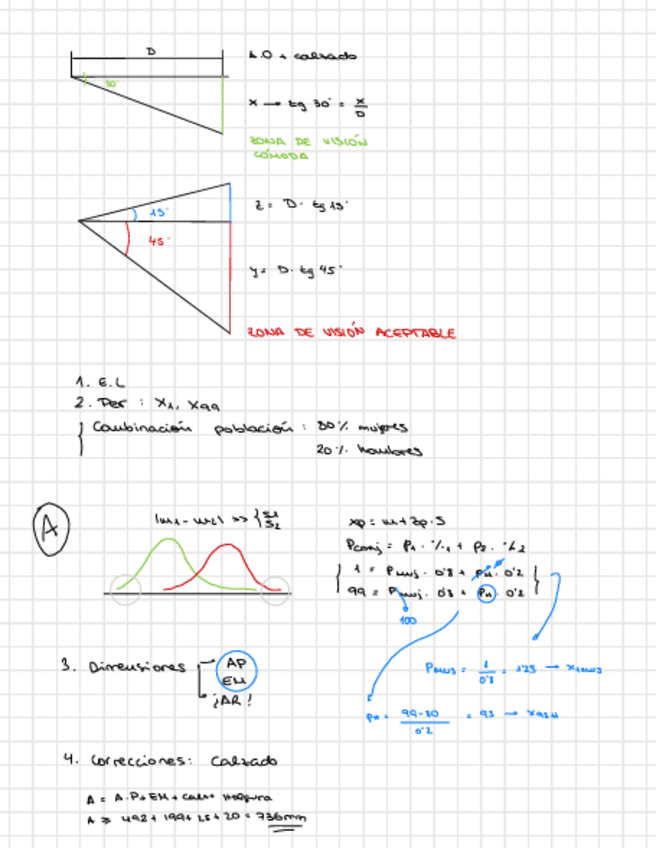 D
A.O + calzado
30°
x → tg 30° = x/D
ZONA DE VISIÓN
CÓMODA
15°
z = D · tg 15°
45°
y = D · tg 45°
ZONA DE VISIÓN ACEPTABLE
1. E.L
2. Per : X1, X99
Combinación población : 80% mujeres
20% hombres
A
|m1 - m2| >> { S1 S2
xp = m + zp · S
Pconj = P1 · %1 + P2 · %2
1 = Pmuj · 0'8 + PH · 0'2
99 = Pmuj · 0'8 + PH · 0'2
100
3. Dimensiones
AP
EM
¡AR!
Pmuj = 1/0'8 = 1'25 →
PH = 99-80/0'2 = 95 → X95H
4. Correcciones: Calzado
A = A.P + EM + calz + holgura
A ≥ 492 + 199 + 25 + 20 = 736mm